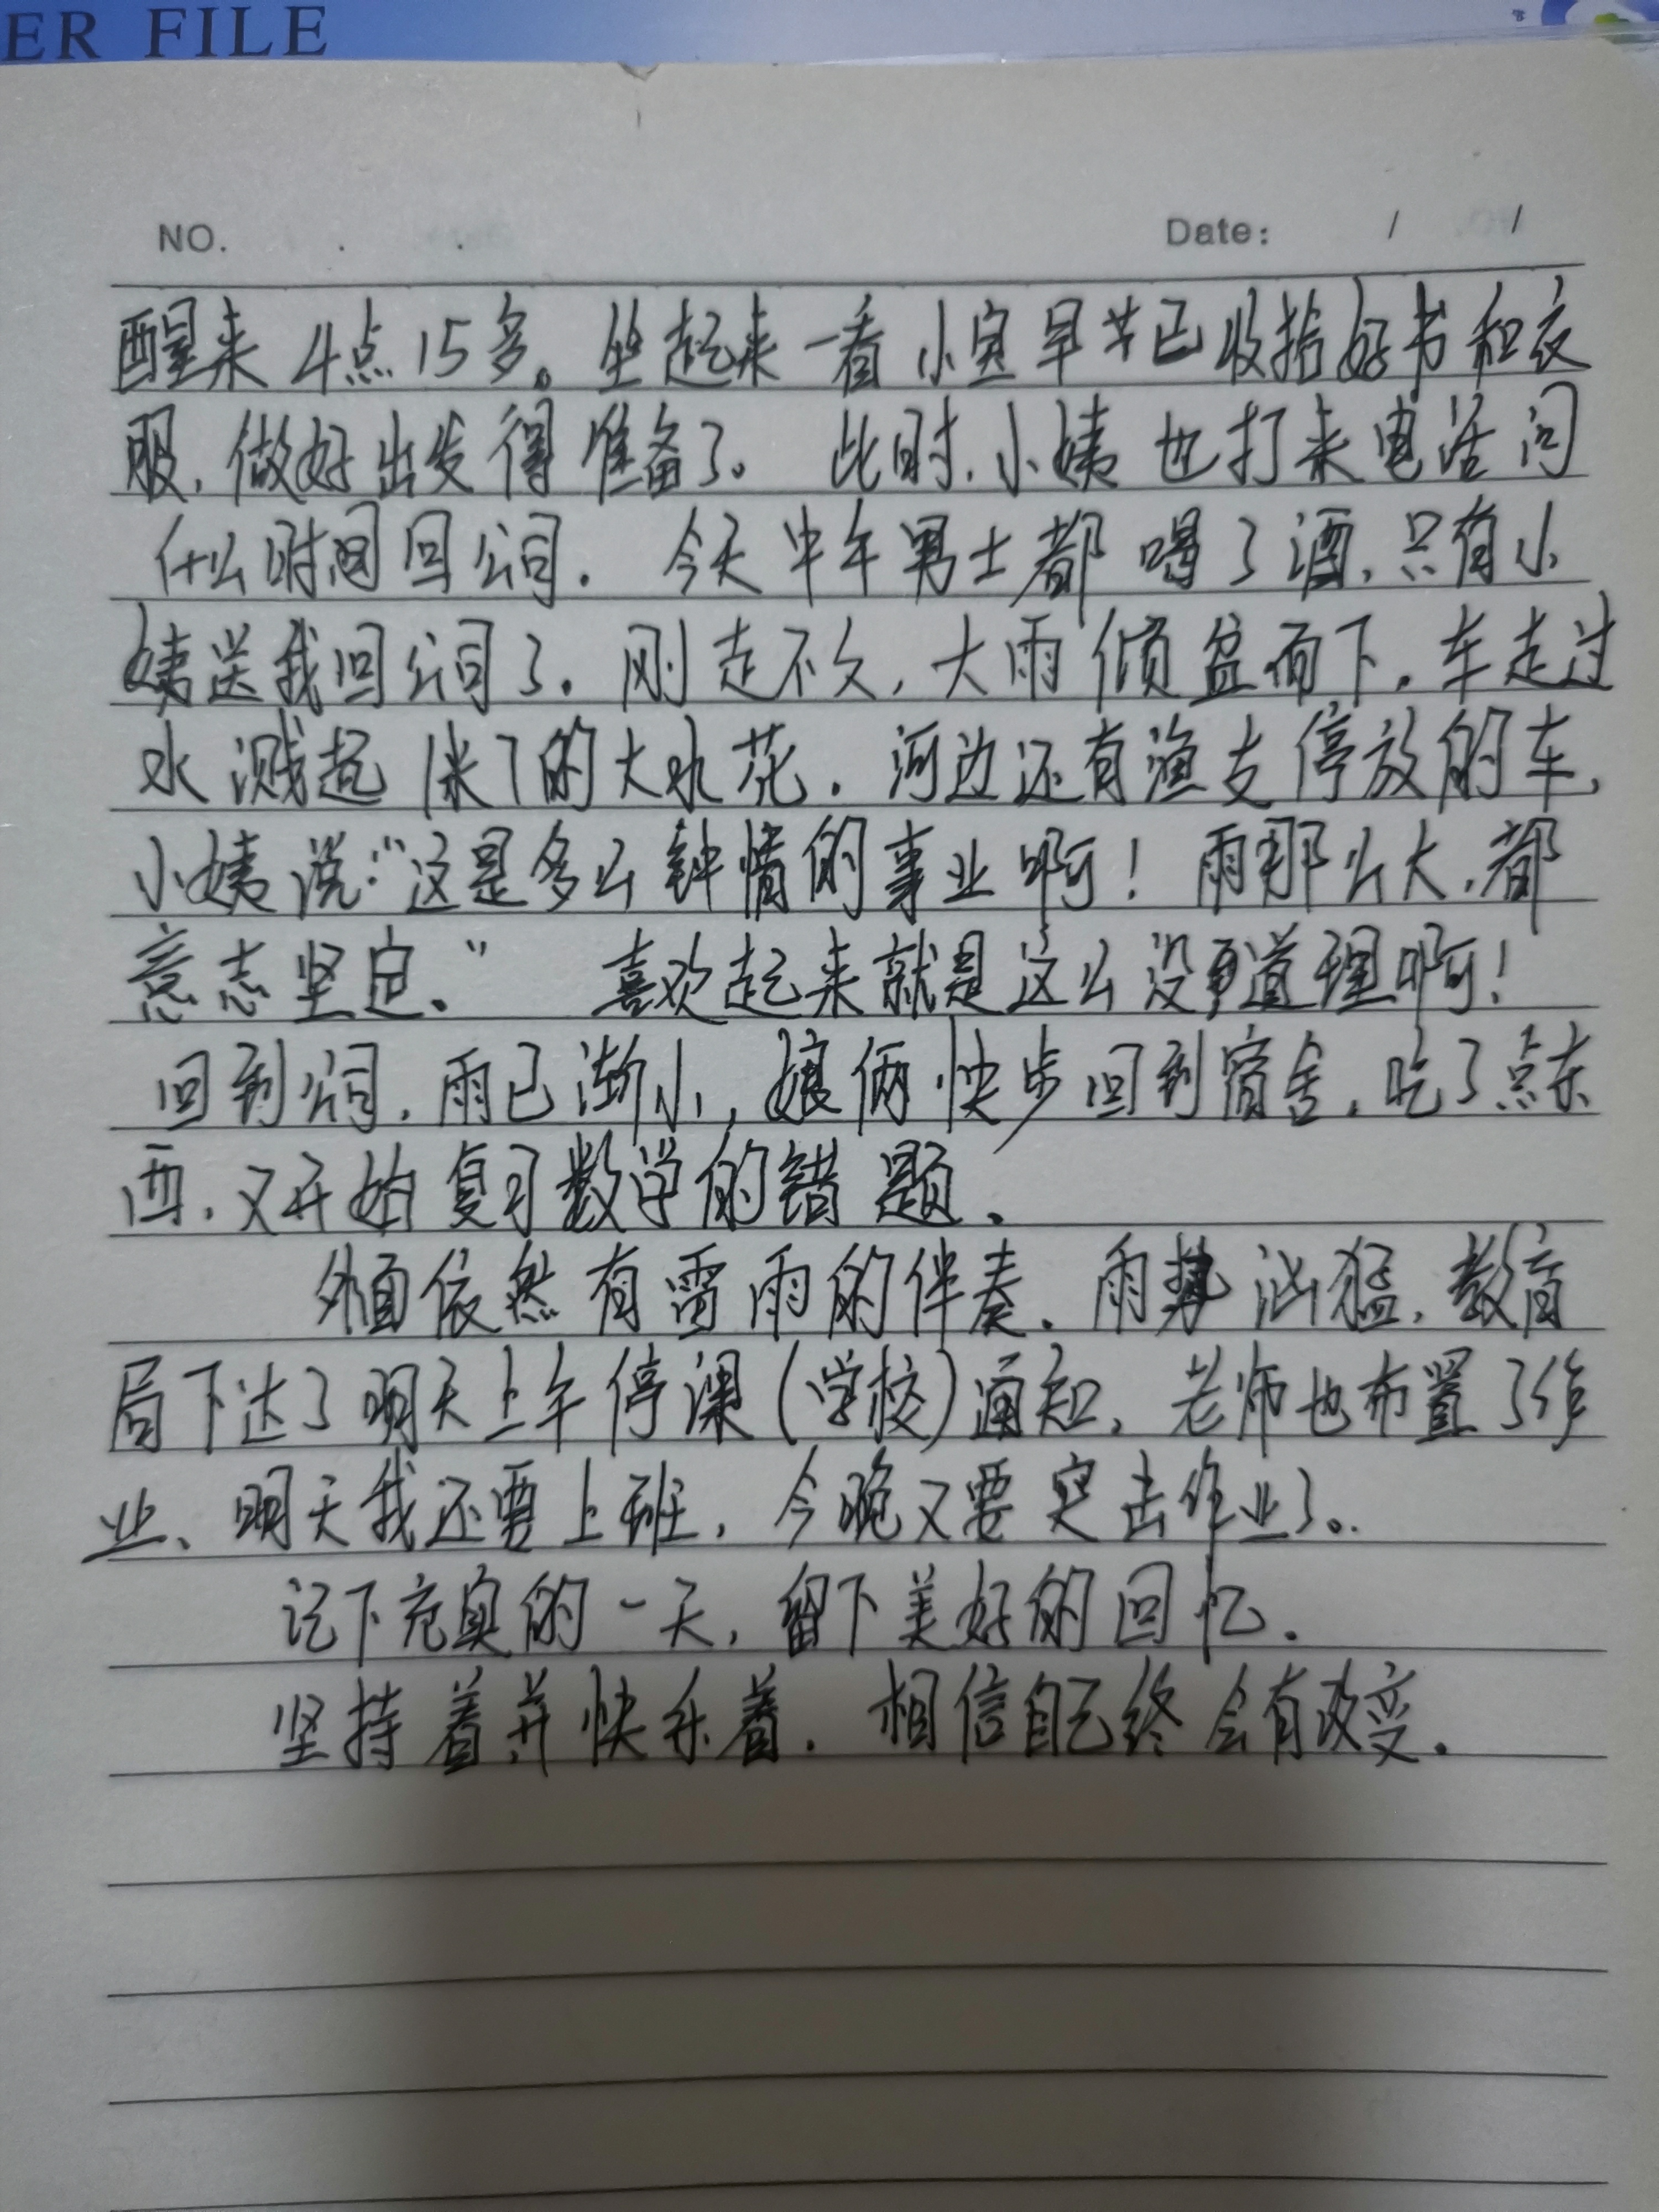 ER FILE
NO. . . Date: / /
醒来4点15多。坐起来一看小宝早早已收拾好书和衣
服,做好出发得准备了。 此时,小姨也打来电话问
什么时间回公司. 今天中午男士都喝了酒,只有小
姨送我回公司了。刚走不久,大雨倾盆而下。车走过
水溅起1米了的大水花. 河边还有渔友停放的车,
小姨说:“这是多么钟情的事业啊!雨那么大,都
意志坚定。” 喜欢起来就是这么没道理啊!
回到公司,雨已渐小,娘俩快步回到宿舍,吃了点东
西,又开始复习数学的错题。
外面依然有雷雨的伴奏. 雨势汹猛,教育
局下达了明天上午停课(学校)通知,老师也布置了作
业、明天我还要上班,今晚又要突击作业了。
记下充实的一天,留下美好的回忆.
坚持着并快乐着. 相信自己终会有改变.